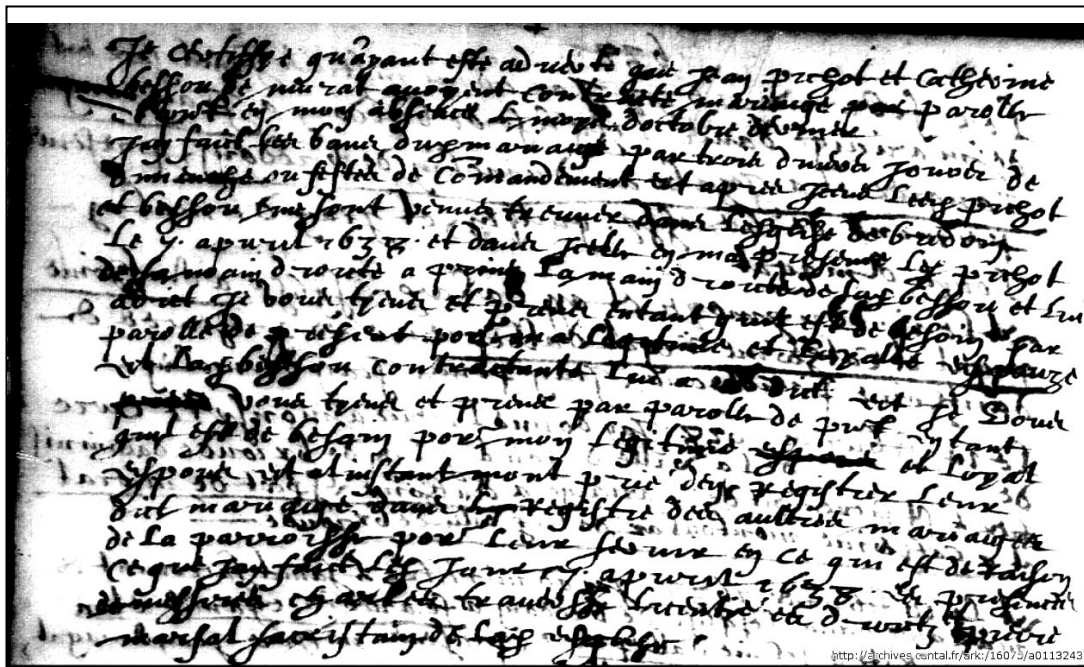 Je certiffie qu'ayant esté adverty que Jean prihot et Catherine
besson de murat avoyent contracté mariage par parolles
en mon absence le moys doctobre dernier
Jay faict les bans dudit mariage par trois divers jours de
dimenche ou festes de comandement et apres iceux lesdits prihot
et besson me sont venus treuver dans lesglize de bredon
Le 5 apvril 1633 et dans icelle en ma presence ledit prihot
de sa main droite a prins la main droite de ladite besson et luy
a dict Je vous tyens et prens entant quil est de besoin par
parolle de présent pour ma légitime et loyalle espouze
et ladite besson contractante luy a dict et Je vous
vous tyens et prens par parolle de pnt entant
quil est de besoin pour mon légitime et loyal
espoux et a linstant mont prié denregistrer leur
dict mariage dans le Registre des aultres mariages
de la parroisse pour leur servir en ce qui est de raison
ce que jay faict lesdits jour 5 apvril 1633 en presence
de messires charles licentié et droitz
martial sacristain de ladite esglize
http://archives.cantal.fr/ark:/16075/a0113243